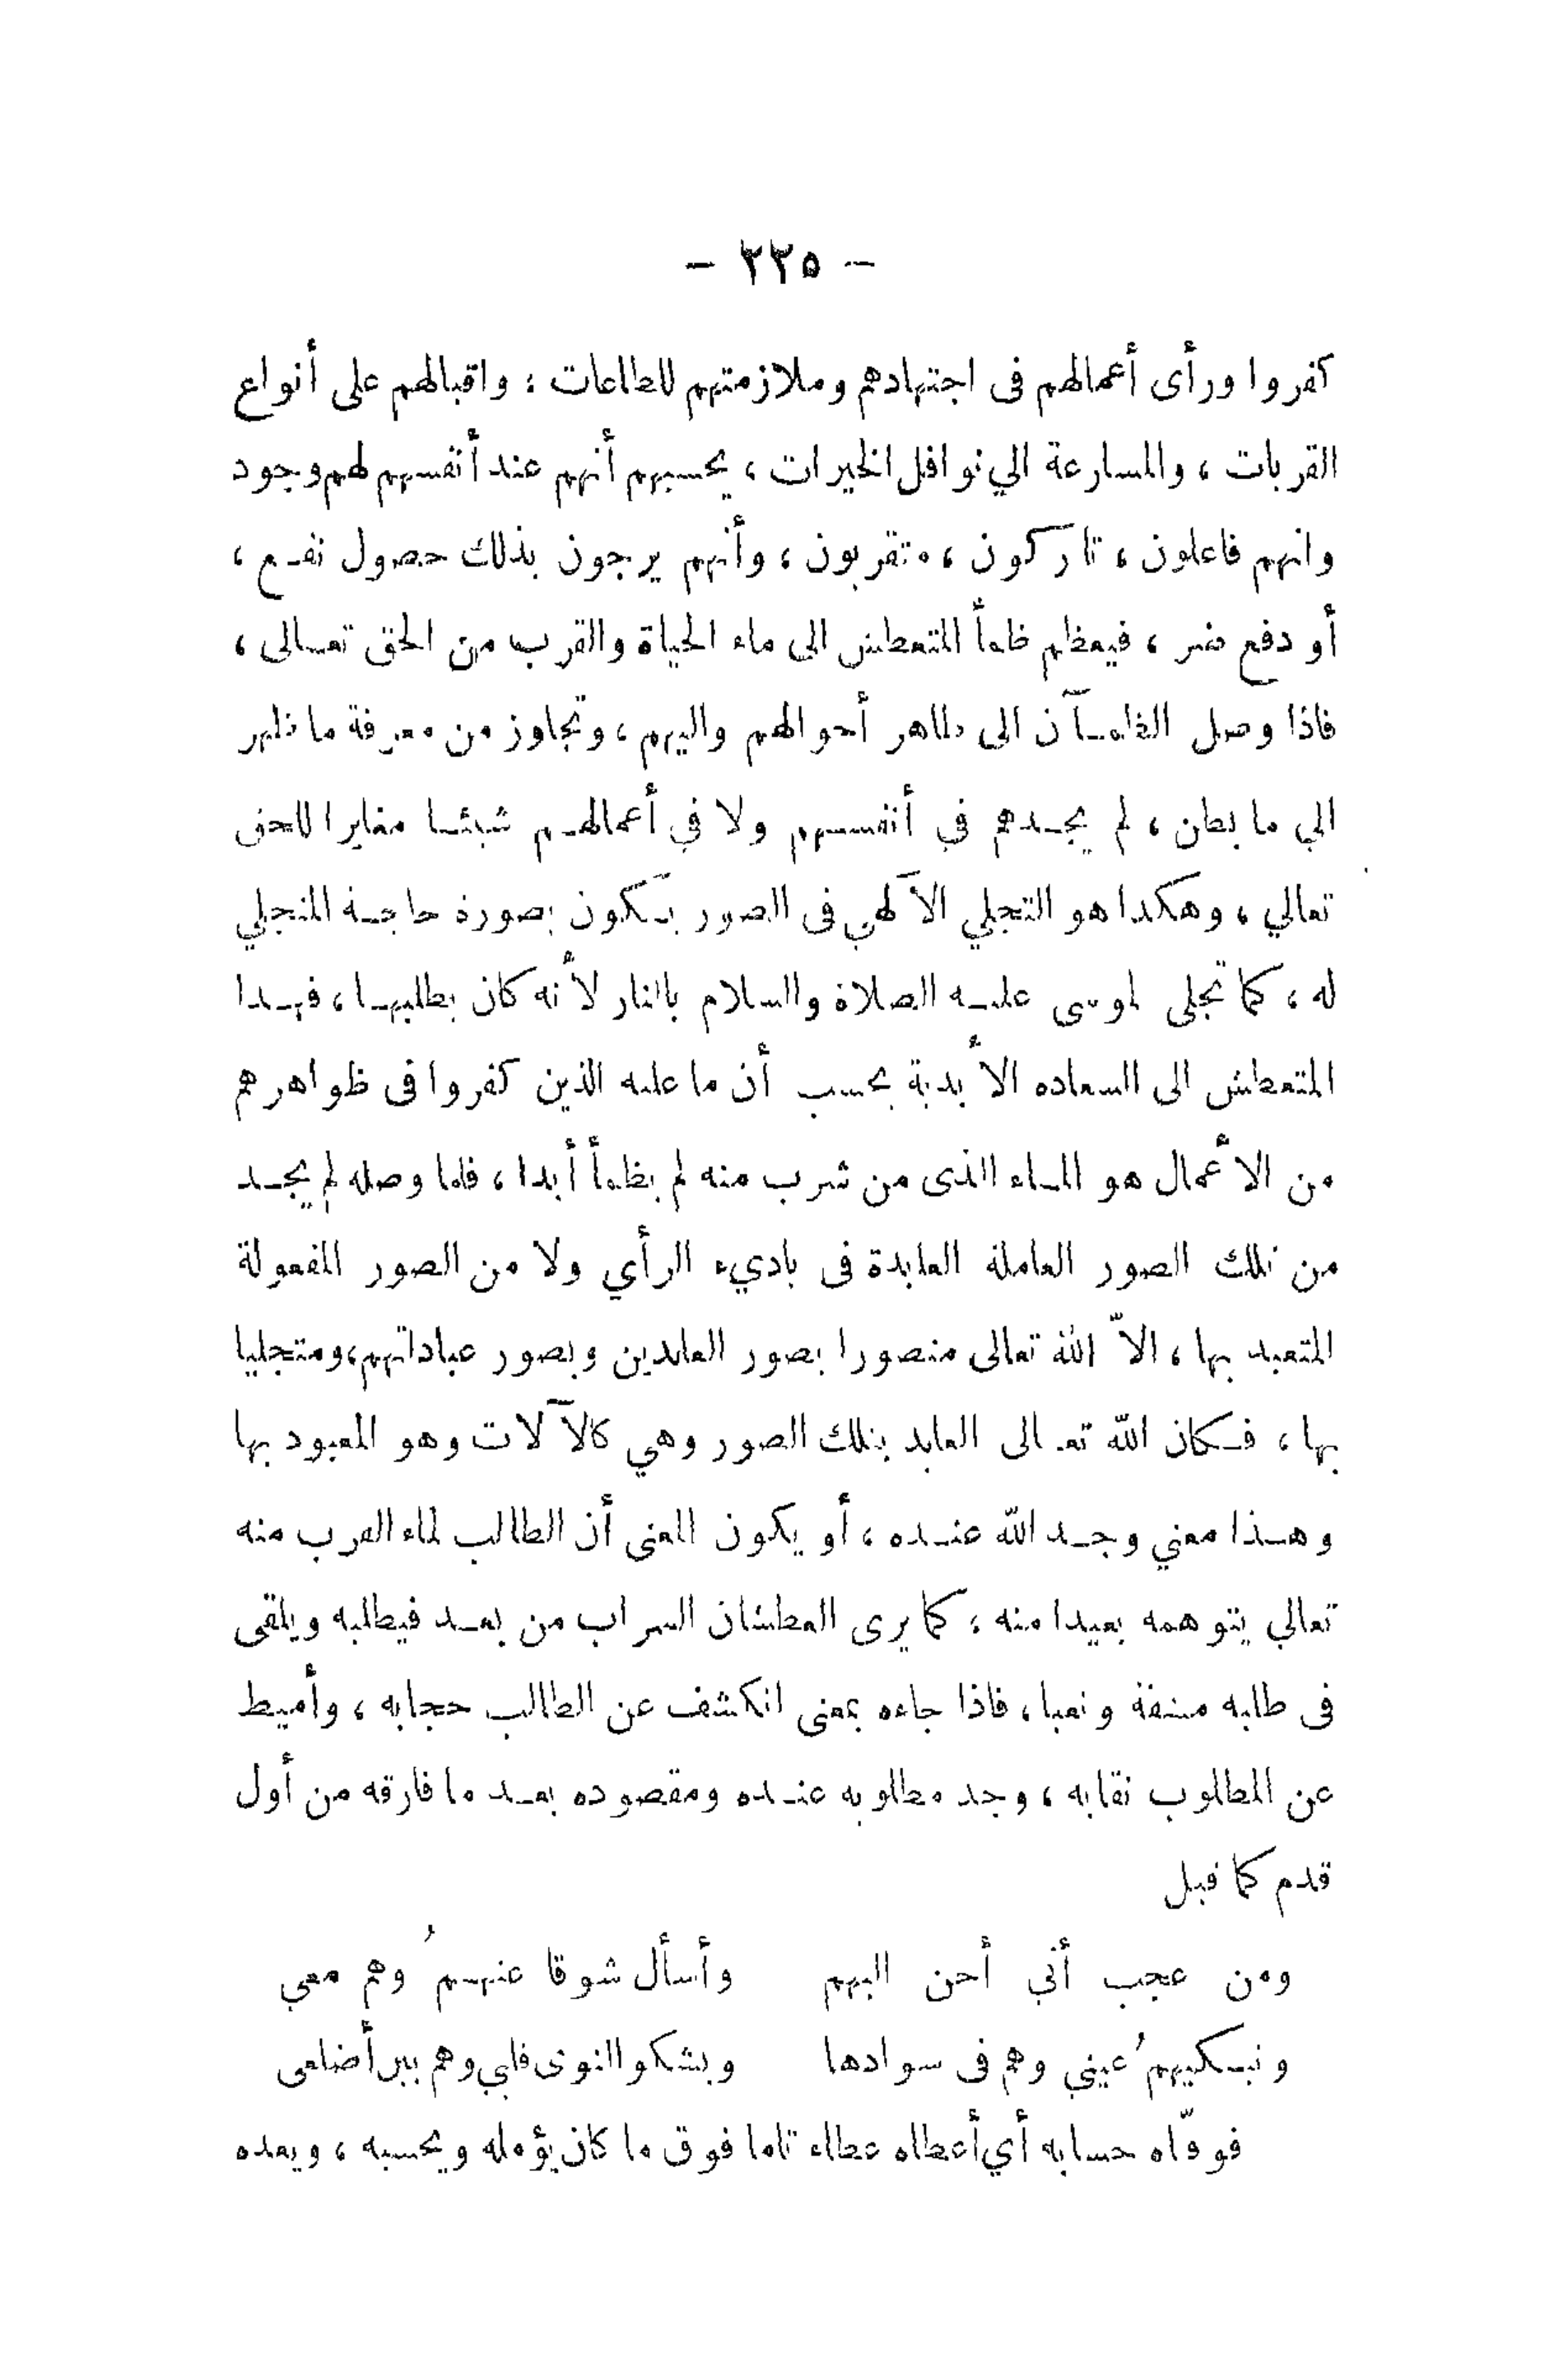 - ٢٢٥ -
كفروا ورأى أعمالهم فى اجتهادهم وملازمتهم للطاعات ؛ واقبالهم على أنواع
القربات ، والمسارعة الي نوافل الخيرات ، يحسبهم أنهم عند أنفسهم لهم وجود
وانهم فاعلون ، تاركون ، متقربون ، وأنهم يرجون بذلك حصول نفع ،
أو دفع ضر ، فيعظم ظمأ المتعطش الى ماء الحياة والقرب من الحق تعالى ،
فاذا وصل الظمآن الى ظاهر أحوالهم واليهم ، وتجاوز من معرفة ما ظهر
الي ما بطن ، لم يجدهم في أنفسهم ولا في أعمالهم شيئا مغايرا للحق
تعالي ، وهكذا هو التجلي الآلهي فى الصور يكون بصورة حاجة المتجلي
له ، كما تجلى لموسى عليه الصلاة والسلام بالنار لأنه كان يطلبها ، فهذا
المتعطش الى السعاده الأبدية يحسب أن ما عليه الذين كفروا فى ظواهرهم
من الأعمال هو الماء الذى من شرب منه لم يظمأ أبدا ، فلما وصله لم يجد
من تلك الصور العاملة العابدة فى باديء الرأي ولا من الصور المفعولة
المتعبد بها ، الاّ الله تعالى متصورا بصور العابدين وبصور عباداتهم، ومتجليا
بها ، فكان الله تعالى العابد بتلك الصور وهي كالآلات وهو المعبود بها
وهذا معني وجد الله عنده ، أو يكون المعنى أن الطالب لماء القرب منه
تعالي يتوهمه بعيدا منه ؛ كما يرى العطشان السراب من بعد فيطلبه ويلقى
فى طلبه مشقة وتعبا ، فاذا جاءه بمعنى انكشف عن الطالب حجابه ، وأميط
عن المطلوب نقابه ، وجد مطلوبه عنده ومقصوده بعد ما فارقه من أول
قدم كما قيل
ومن عجب أني أحن اليهم وأسأل شوقا عنهمُ وهم معي
وتبكيهمُ عيني وهم فى سوادها ويشكو النوى قلبي وهم بين أضلعى
فوفّاه حسابه أي أعطاه عطاء تاما فوق ما كان يؤمله ويحسبه ، ويعده